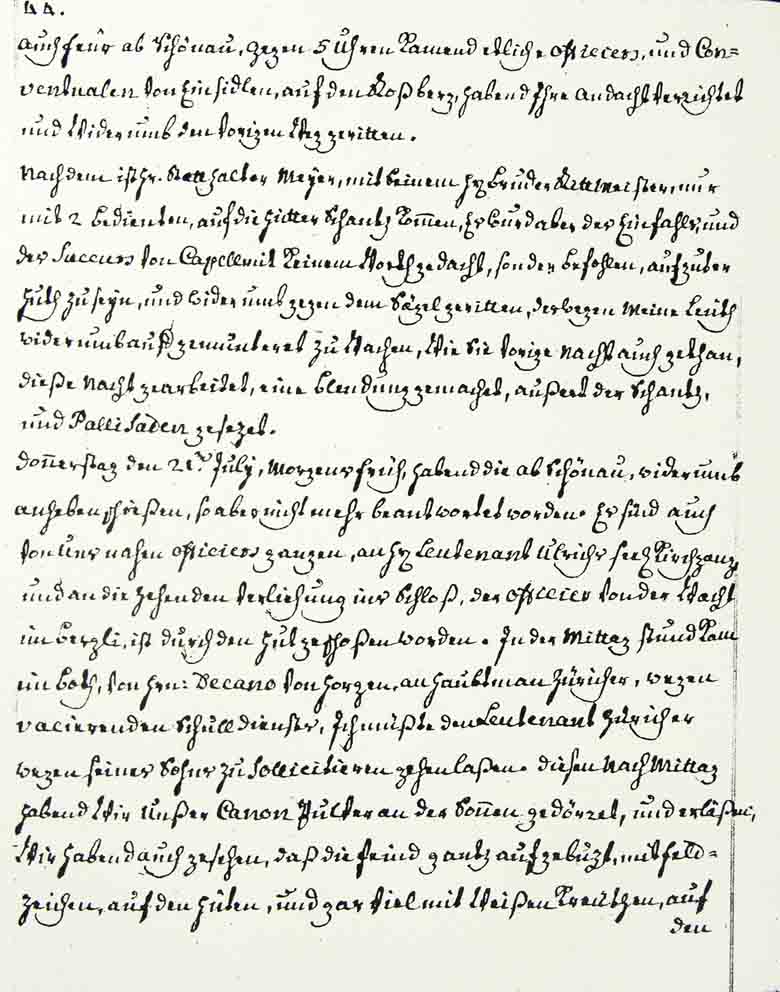 44.
auch feür ab Schönau, gegen 5 Uhren kamend etliche Officiers, und Con=
ventualen von Einsidlen, auf den Roßberg, habend Ihre andacht verrichtet
und widerumb den vorigen Weg geritten.
Nachdem ist Hr. Statthalter Meyer, mit seinem Hr bruder Rittmeister, nur
mit 2 bedienten, auf die Hütter Schantz kommen, Es wurd aber des Einfahls, und
des Succurs von Capell mit keinem Worth gedacht, sonder befohlen, auf guter
Huth zu seyn, und widerumb gegen dem Sägel geritten, deswegen meine Leüth
widerumb aufgemunteret zu Wachen, wie sie vorige nacht auch gethan,
dieße nacht gearbeitet, eine blendung gemachet, außert der Schantz,
und Pallisaden gesezet.
Donnerstag den 21.t July, morgens früh, habend die ab Schönau, widerumb
anheben schießen, so aber nicht mehr beantwortet worden. Es sind auch
von Uns nahen Officiers gangen, an Hr Leutenant Ulrichs seel. Kirchgang,
und an die Zehenden verliehung ins Schloß, der Officier von der Wacht
im bergli, ist durch den Hut geschoßen worden. In der Mittag stund kam
ein both, von Hrn: Decano von Horgen, an Haubtman Züricher, wegen
vacierenden Schulldiensts, Ich müßte den Leutenant Züricher
wegen seines Sohns zu Sollicitieren gehen laßen. diesen Nach Mittag
habend Wir Unßer Canon Pulver an der Sonnen gedörret, und erläsen,
Wir habend auch gesehen, daß die feind gantz aufgebuzt, mit feld=
zeichen, auf den Hüten, und gar viel mit Weißen Kreützen, auf
den